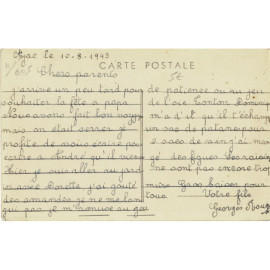 le 10-8-1943
CARTE POSTALE
Chers parents
J'arrive un peu tard pour
souhaiter la fête a papa
Nous avons fait bon voyage
mais on était serrer je
profite de vous écrire pour
écrire a André qu'il vienne
Hier je suis aller au jardin
avec j'ai gouté
des amandes je ne me
pas je m'amuse au jeu
de patience ou au jeu
de l'oie Tonton
m'a dit qu'il t'échange
un sac de patames pour
sacs de j'ai man
gé des figues les raisins
ne sont pas encore trop
mure Gros baises pour
tous Votre fils
Georges